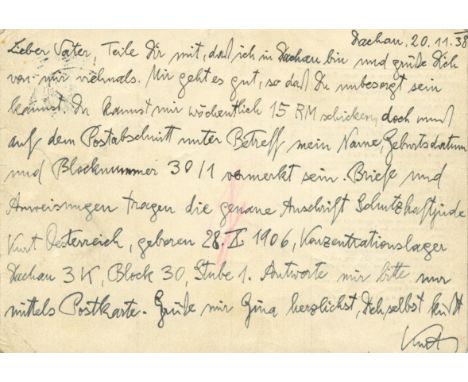 Dachau, 20.11.38
Lieber Vater, Teile Dir mit, daß ich in Dachau bin und grüße Dich
von mir vielmals. Mir geht es gut, so daß Du unbesorgt sein
kannst. Du kannst mir wöchentlich 15 RM schicken, doch muß
auf dem Postabschnitt unter Betreff mein Name, Geburtsdatum
und Blocknummer 30/1 vermerkt sein. Briefe und
Anweisungen tragen die genaue Anschrift Schutzhaftjude
Kurt Oesterreich, geboren 28. 1906, Konzentrationslager
Dachau 3K, Block 30, Stube 1. Antworte mir bitte nur
mittels Postkarte. Grüße mir Gina herzlichst, Dich selbst küßt
Kurt